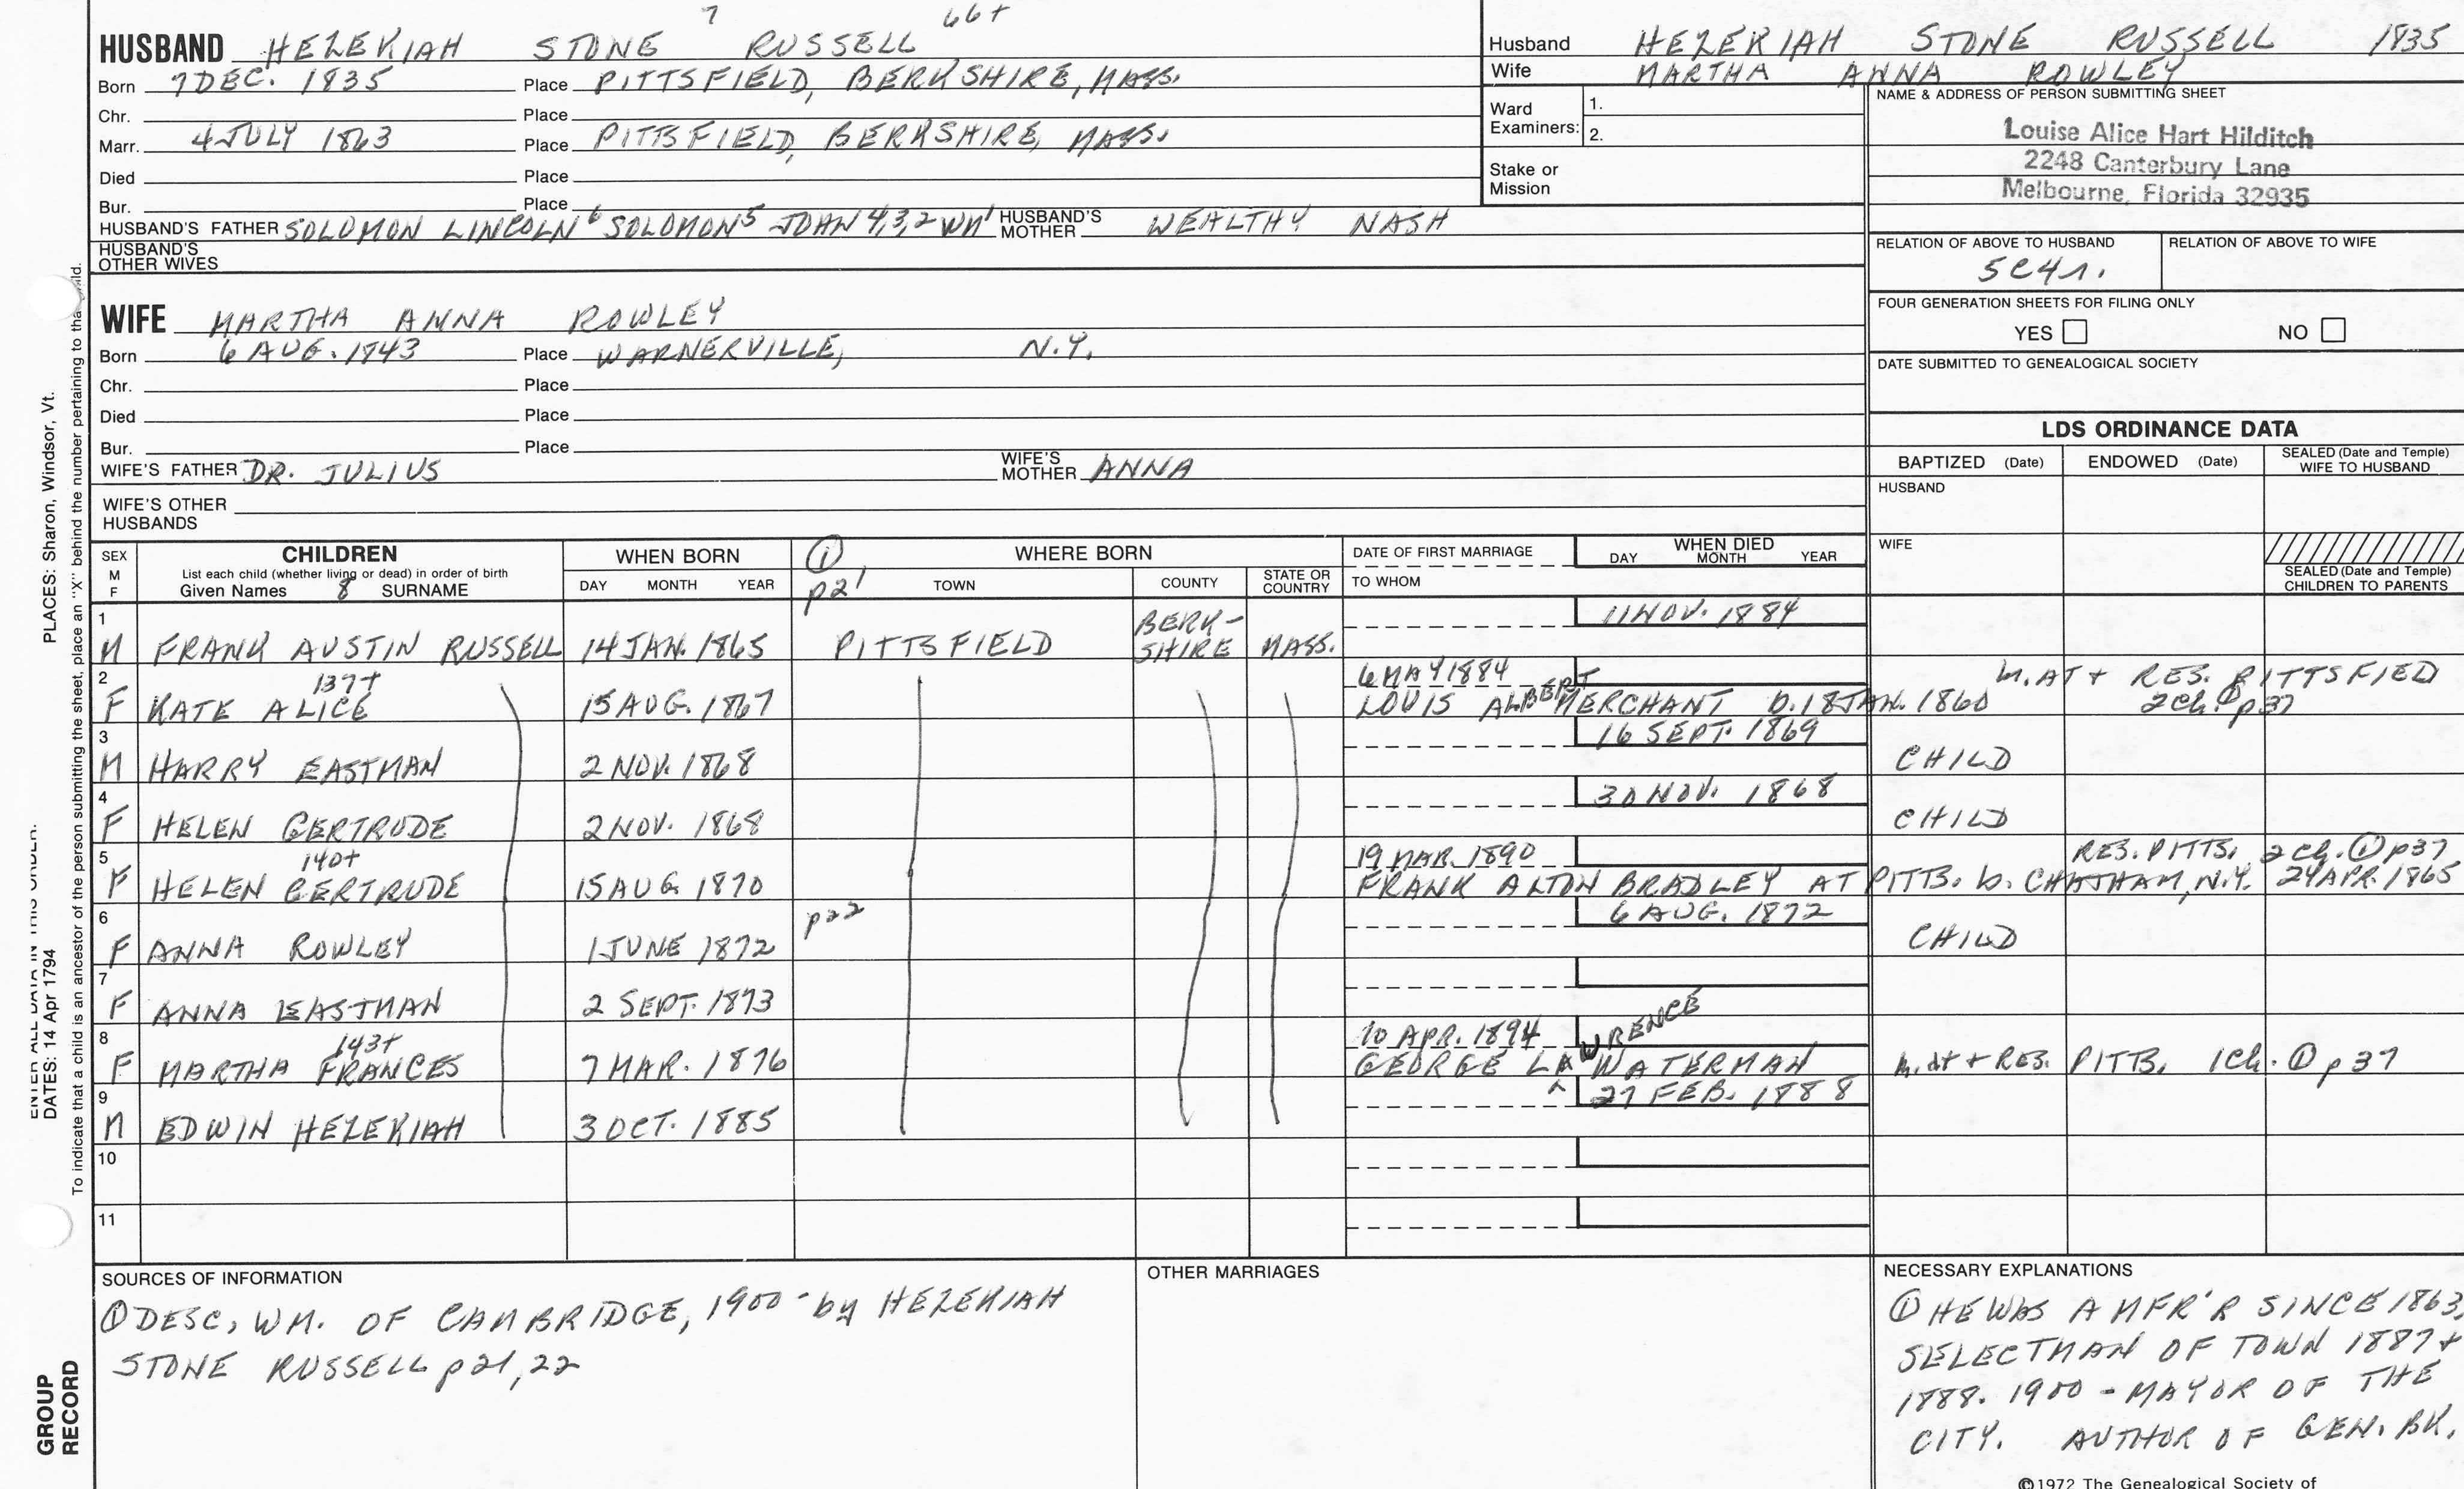 7 66+
HUSBAND HEZEKIAH STONE RUSSELL
Born 7 DEC. 1835 Place PITTSFIELD, BERKSHIRE, MASS.
Chr. Place
Marr. 4 JULY 1863 Place PITTSFIELD, BERKSHIRE, MASS.
Died Place
Bur. Place
HUSBAND'S FATHER SOLOMON LINCOLN 6 SOLOMON 5 JOHN 4,3,2 WM 1 HUSBAND'S MOTHER WEALTHY NASH
HUSBAND'S OTHER WIVES
Husband HEZEKIAH STONE RUSSELL 1835
Wife MARTHA ANNA ROWLEY
Ward Examiners: 1.
2.
Stake or Mission
NAME & ADDRESS OF PERSON SUBMITTING SHEET
Louise Alice Hart Hilditch
2248 Canterbury Lane
Melbourne, Florida 32935
RELATION OF ABOVE TO HUSBAND RELATION OF ABOVE TO WIFE
5C4r.
FOUR GENERATION SHEETS FOR FILING ONLY
YES NO
DATE SUBMITTED TO GENEALOGICAL SOCIETY
WIFE MARTHA ANNA ROWLEY
Born 6 AUG. 1843 Place WARNERVILLE, N.Y.
Chr. Place
Died Place
Bur. Place
WIFE'S FATHER DR. JULIUS WIFE'S MOTHER ANNA
WIFE'S OTHER HUSBANDS
LDS ORDINANCE DATA
BAPTIZED (Date) ENDOWED (Date) SEALED (Date and Temple) WIFE TO HUSBAND
HUSBAND
WIFE
SEALED (Date and Temple) CHILDREN TO PARENTS
SEX M F CHILDREN WHEN BORN ① WHERE BORN DATE OF FIRST MARRIAGE WHEN DIED
List each child (whether living or dead) in order of birth
Given Names 8 SURNAME DAY MONTH YEAR p21 TOWN COUNTY STATE OR COUNTRY TO WHOM DAY MONTH YEAR
1 11 NOV. 1884
M FRANK AUSTIN RUSSELL 14 JAN. 1865 PITTSFIELD BERK-SHIRE MASS.
2 137+ 6 MAY 1884 m. AT + RES. PITTSFIELD
F KATE ALICE 15 AUG. 1867 LOUIS ALBERT MERCHANT b. 18 JAN. 1860 2 ch. ① p37
3 16 SEPT. 1869
M HARRY EASTMAN 2 NOV. 1868 CHILD
4 30 NOV. 1868
F HELEN GERTRUDE 2 NOV. 1868 CHILD
5 140+ 19 MAR. 1890 RES. PITTS. 2 ch. ① p37
F HELEN GERTRUDE 15 AUG 1870 FRANK ALTON BRADLEY AT PITTS. b. CHATHAM, N.Y. 24 APR. 1865
6 p22 6 AUG. 1872
F ANNA ROWLEY 1 JUNE 1872 CHILD
7
F ANNA EASTMAN 2 SEPT. 1873
8 143+ 10 APR. 1894
F MARTHA FRANCES 7 MAR. 1876 GEORGE LAWRENCE WATERMAN m. at + RES. PITTS. 1 ch. ① p37
9 27 FEB. 1888
M EDWIN HEZEKIAH 3 OCT. 1885
10
11
SOURCES OF INFORMATION
① DESC, WM. OF CAMBRIDGE, 1900 - by HEZEKIAH
STONE RUSSELL p 21, 22
OTHER MARRIAGES
NECESSARY EXPLANATIONS
① HE WAS A MFR'R SINCE 1863,
SELECTMAN OF TOWN 1887 +
1888. 1900 - MAYOR OF THE
CITY. AUTHOR OF GEN. BK.
©1972 The Genealogical Society of
PLACES: Sharon, Windsor, Vt.
DATES: 14 Apr 1794
To indicate that a child is an ancestor of the person submitting the sheet, place an "X" behind the number pertaining to that child.
GROUP
RECORD